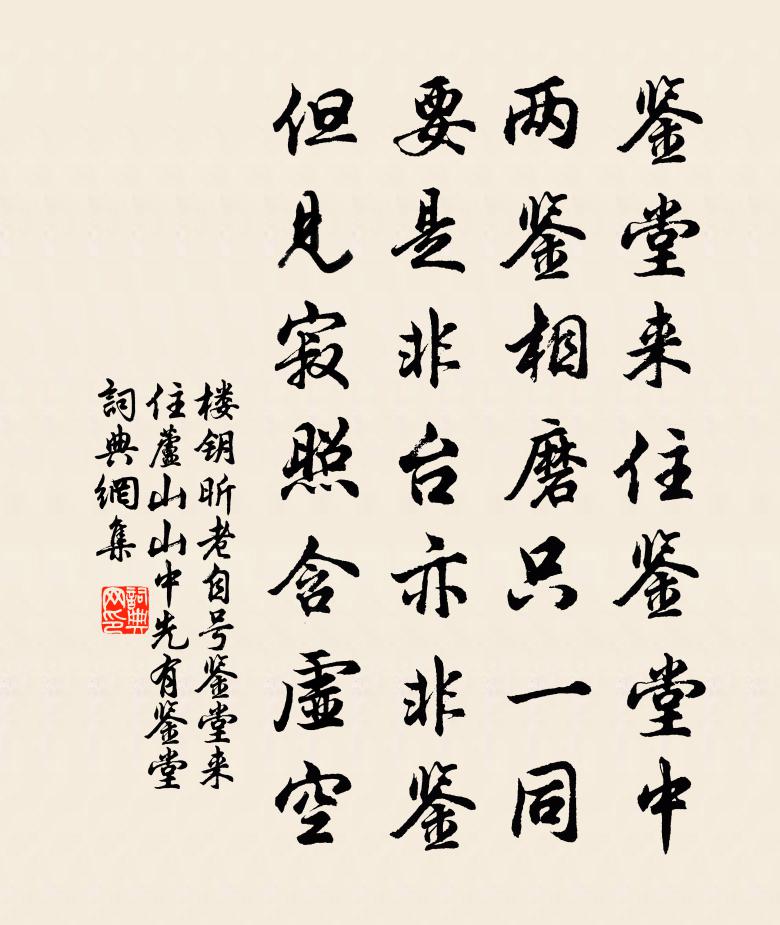 鉴堂来住鉴堂中
两鉴相磨只一同
要是非台亦非鉴
但见寂照含虚空
楼钥昕老自号鉴堂来
住蘆山山中先有鉴堂
詞典網集
詞典网印